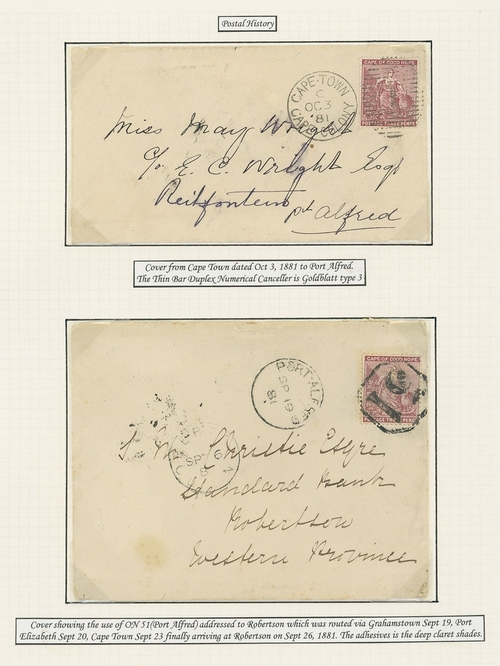 Postal History
CAPE-TOWN
C
OC 3
'81
CAPE COLONY
CAPE OF GOOD HOPE
POSTAGE THREE PENCE
Miss May Wright
C/o E. C. Wright Esqr
Reitfontein
pt Alfred
Cover from Cape Town dated Oct 3, 1881 to Port Alfred.
The Thin Bar Duplex Numerical Canceller is Goldblatt type 3
PORT-ALFRED
SP 19
81
CAPE OF GOOD HOPE
POSTAGE THREE PENCE
Christie Esqre
Standard Bank
Robertson
Western Province
Cover showing the use of ON 51(Port Alfred) addressed to Robertson which was routed via Grahamstown Sept 19, Port
Elizabeth Sept 20, Cape Town Sept 23 finally arriving at Robertson on Sept 26, 1881. The adhesives is the deep claret shades.